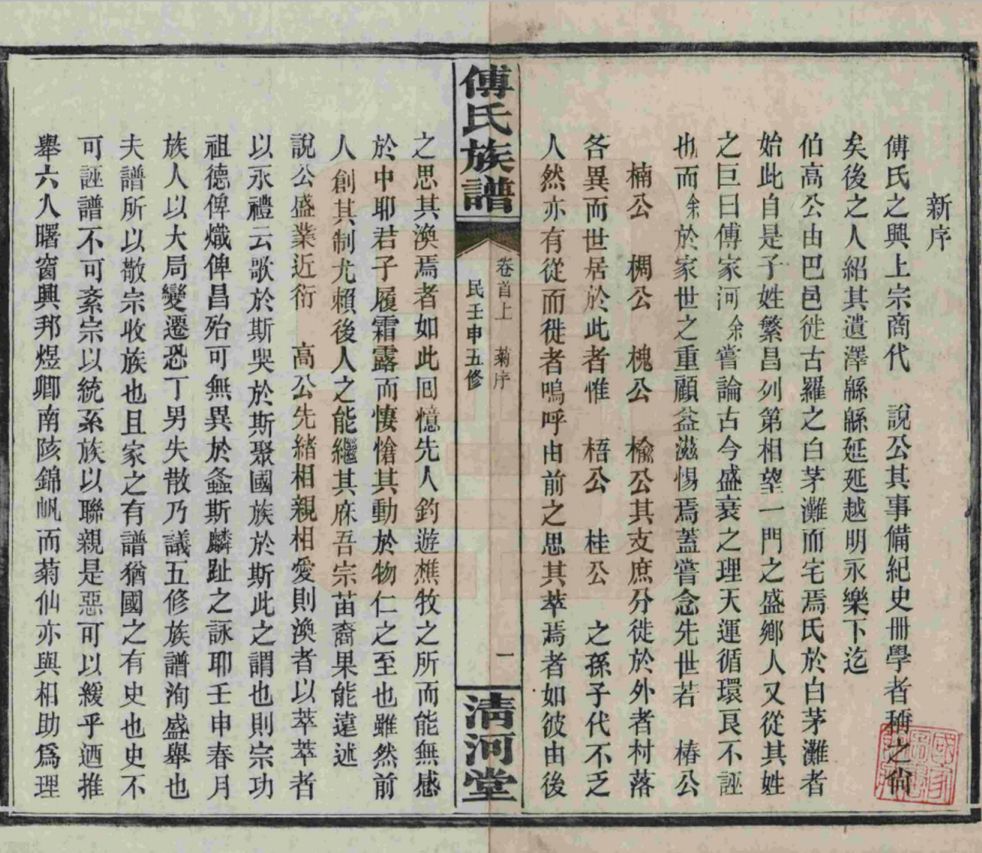 新序
傅氏之興上宗商代　說公其事備紀史冊學者稱之尙
矣後之人紹其遺澤緜緜延延越明永樂下迄
伯高公由巴邑徙古羅之白茅灘而宅焉氏於白茅灘者
始此自是子姓繁昌列第相望一門之盛鄉人又從其姓
之巨曰傅家河余嘗論古今盛衰之理天運循環良不誣
也而余於家世之重顧益滋惕焉蓋嘗念先世若　椿公
楠公　椆公　槐公　楡公其支庶分徙於外者村落
各異而世居於此者惟　梧公　桂公　之孫子代不乏
人然亦有從而徙者嗚呼由前之思其萃焉者如彼由後
傅氏族譜
卷首上　菊序
民壬申五修
一
淸河堂
之思其渙焉者如此回憶先人釣遊樵牧之所而能無感
於中耶君子履霜露而悽愴其動於物仁之至也雖然前
人創其制尤賴後人之能繼其庥吾宗苗裔果能遠述
說公盛業近衍　高公先緒相親相愛則渙者以萃萃者
以永禮云歌於斯哭於斯聚國族於斯此之謂也則宗功
祖德俾熾俾昌殆可無異於螽斯麟趾之詠耶壬申春月
族人以大局變遷恐丁男失散乃議五修族譜洵盛舉也
夫譜所以散宗收族也且家之有譜猶國之有史也史不
可誣譜不可紊宗以統系族以聯親是惡可以緩乎迺推
舉六人曙窗興邦煜卿南陔錦帆而菊仙亦與相助爲理